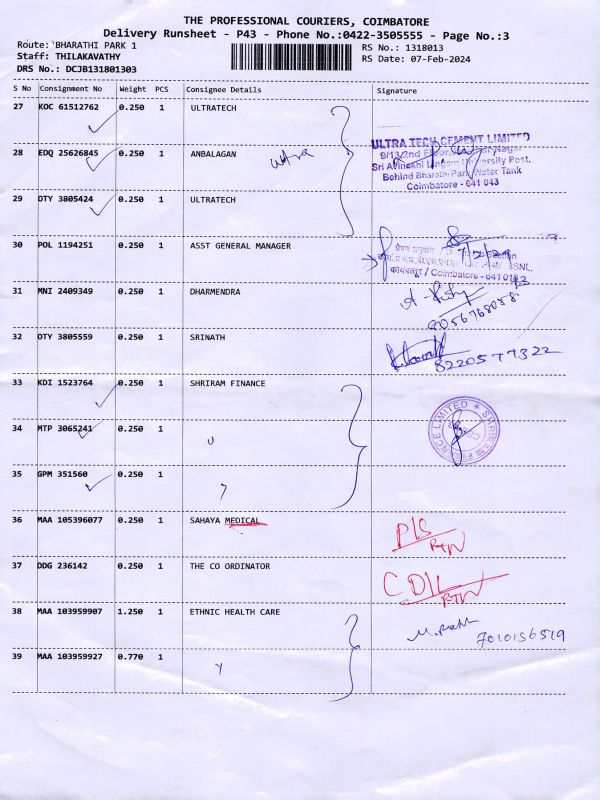 THE PROFESSIONAL COURIERS, COIMBATORE
Delivery Runsheet - P43 - Phone No.:0422-3505555 - Page No.:3
Route: BHARATHI PARK 1
RS No.: 1318013
Staff: THILAKAVATHY
RS Date: 07-Feb-2024
DRS No.: DCJB131801303
S No Consignment No Weight PCS Consignee Details Signature
27 KOC 61512762 0.250 1 ULTRATECH
ULTRA TECH CEMENT LIMITED
28 EDQ 25626845 0.250 1 ANBALAGAN ultra
Sri Avinashi Lingam University Post,
Behind Bharathi Park Water Tank
Coimbatore - 641 043
29 OTY 3805424 0.250 1 ULTRATECH
30 POL 1194251 0.250 1 ASST GENERAL MANAGER
7/2/24
BSNL,
कोयंबत्तूर / Coimbatore - 641 012
31 MNI 2409349 0.250 1 DHARMENDRA
8056768058
32 OTY 3805559 0.250 1 SRINATH
8220577322
33 KDI 1523764 0.250 1 SHRIRAM FINANCE
34 MTP 3065241 0.250 1 "
SHRIRAM FINANCE LIMITED
35 GPM 351560 0.250 1
36 MAA 105396077 0.250 1 SAHAYA MEDICAL
P/S
RTN
37 DDG 236142 0.250 1 THE CO ORDINATOR
RTN
38 MAA 103959907 1.250 1 ETHNIC HEALTH CARE
7010156519
39 MAA 103959927 0.770 1